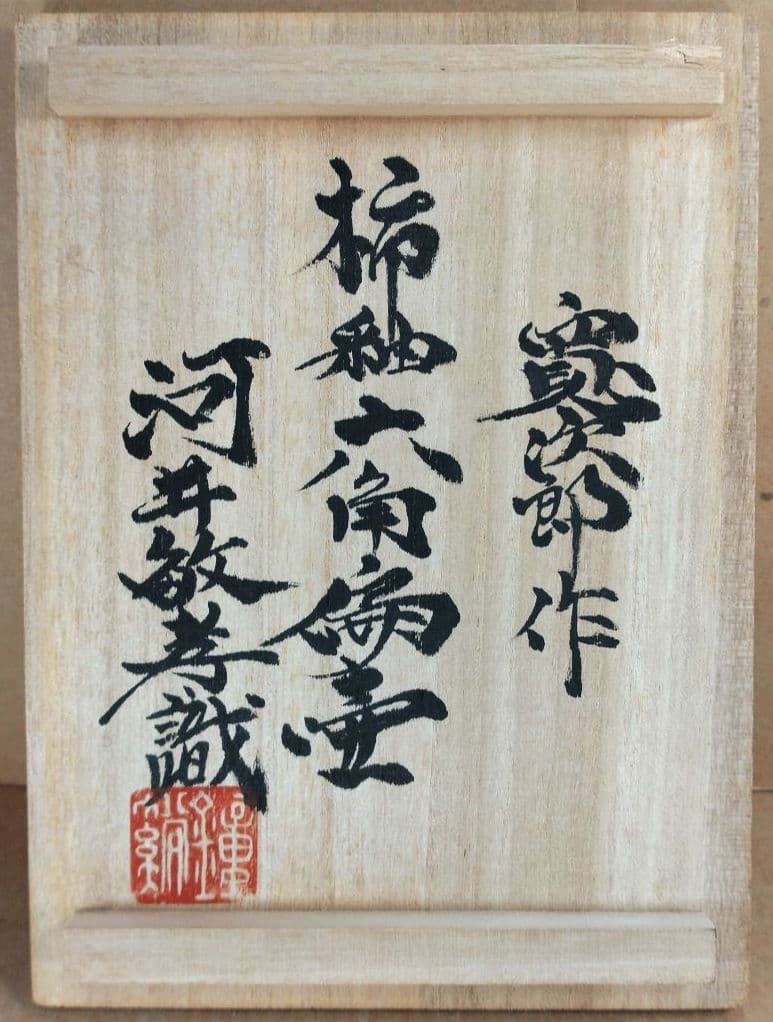 寛次郎作
柿釉六角扁壷
河井敏孝識